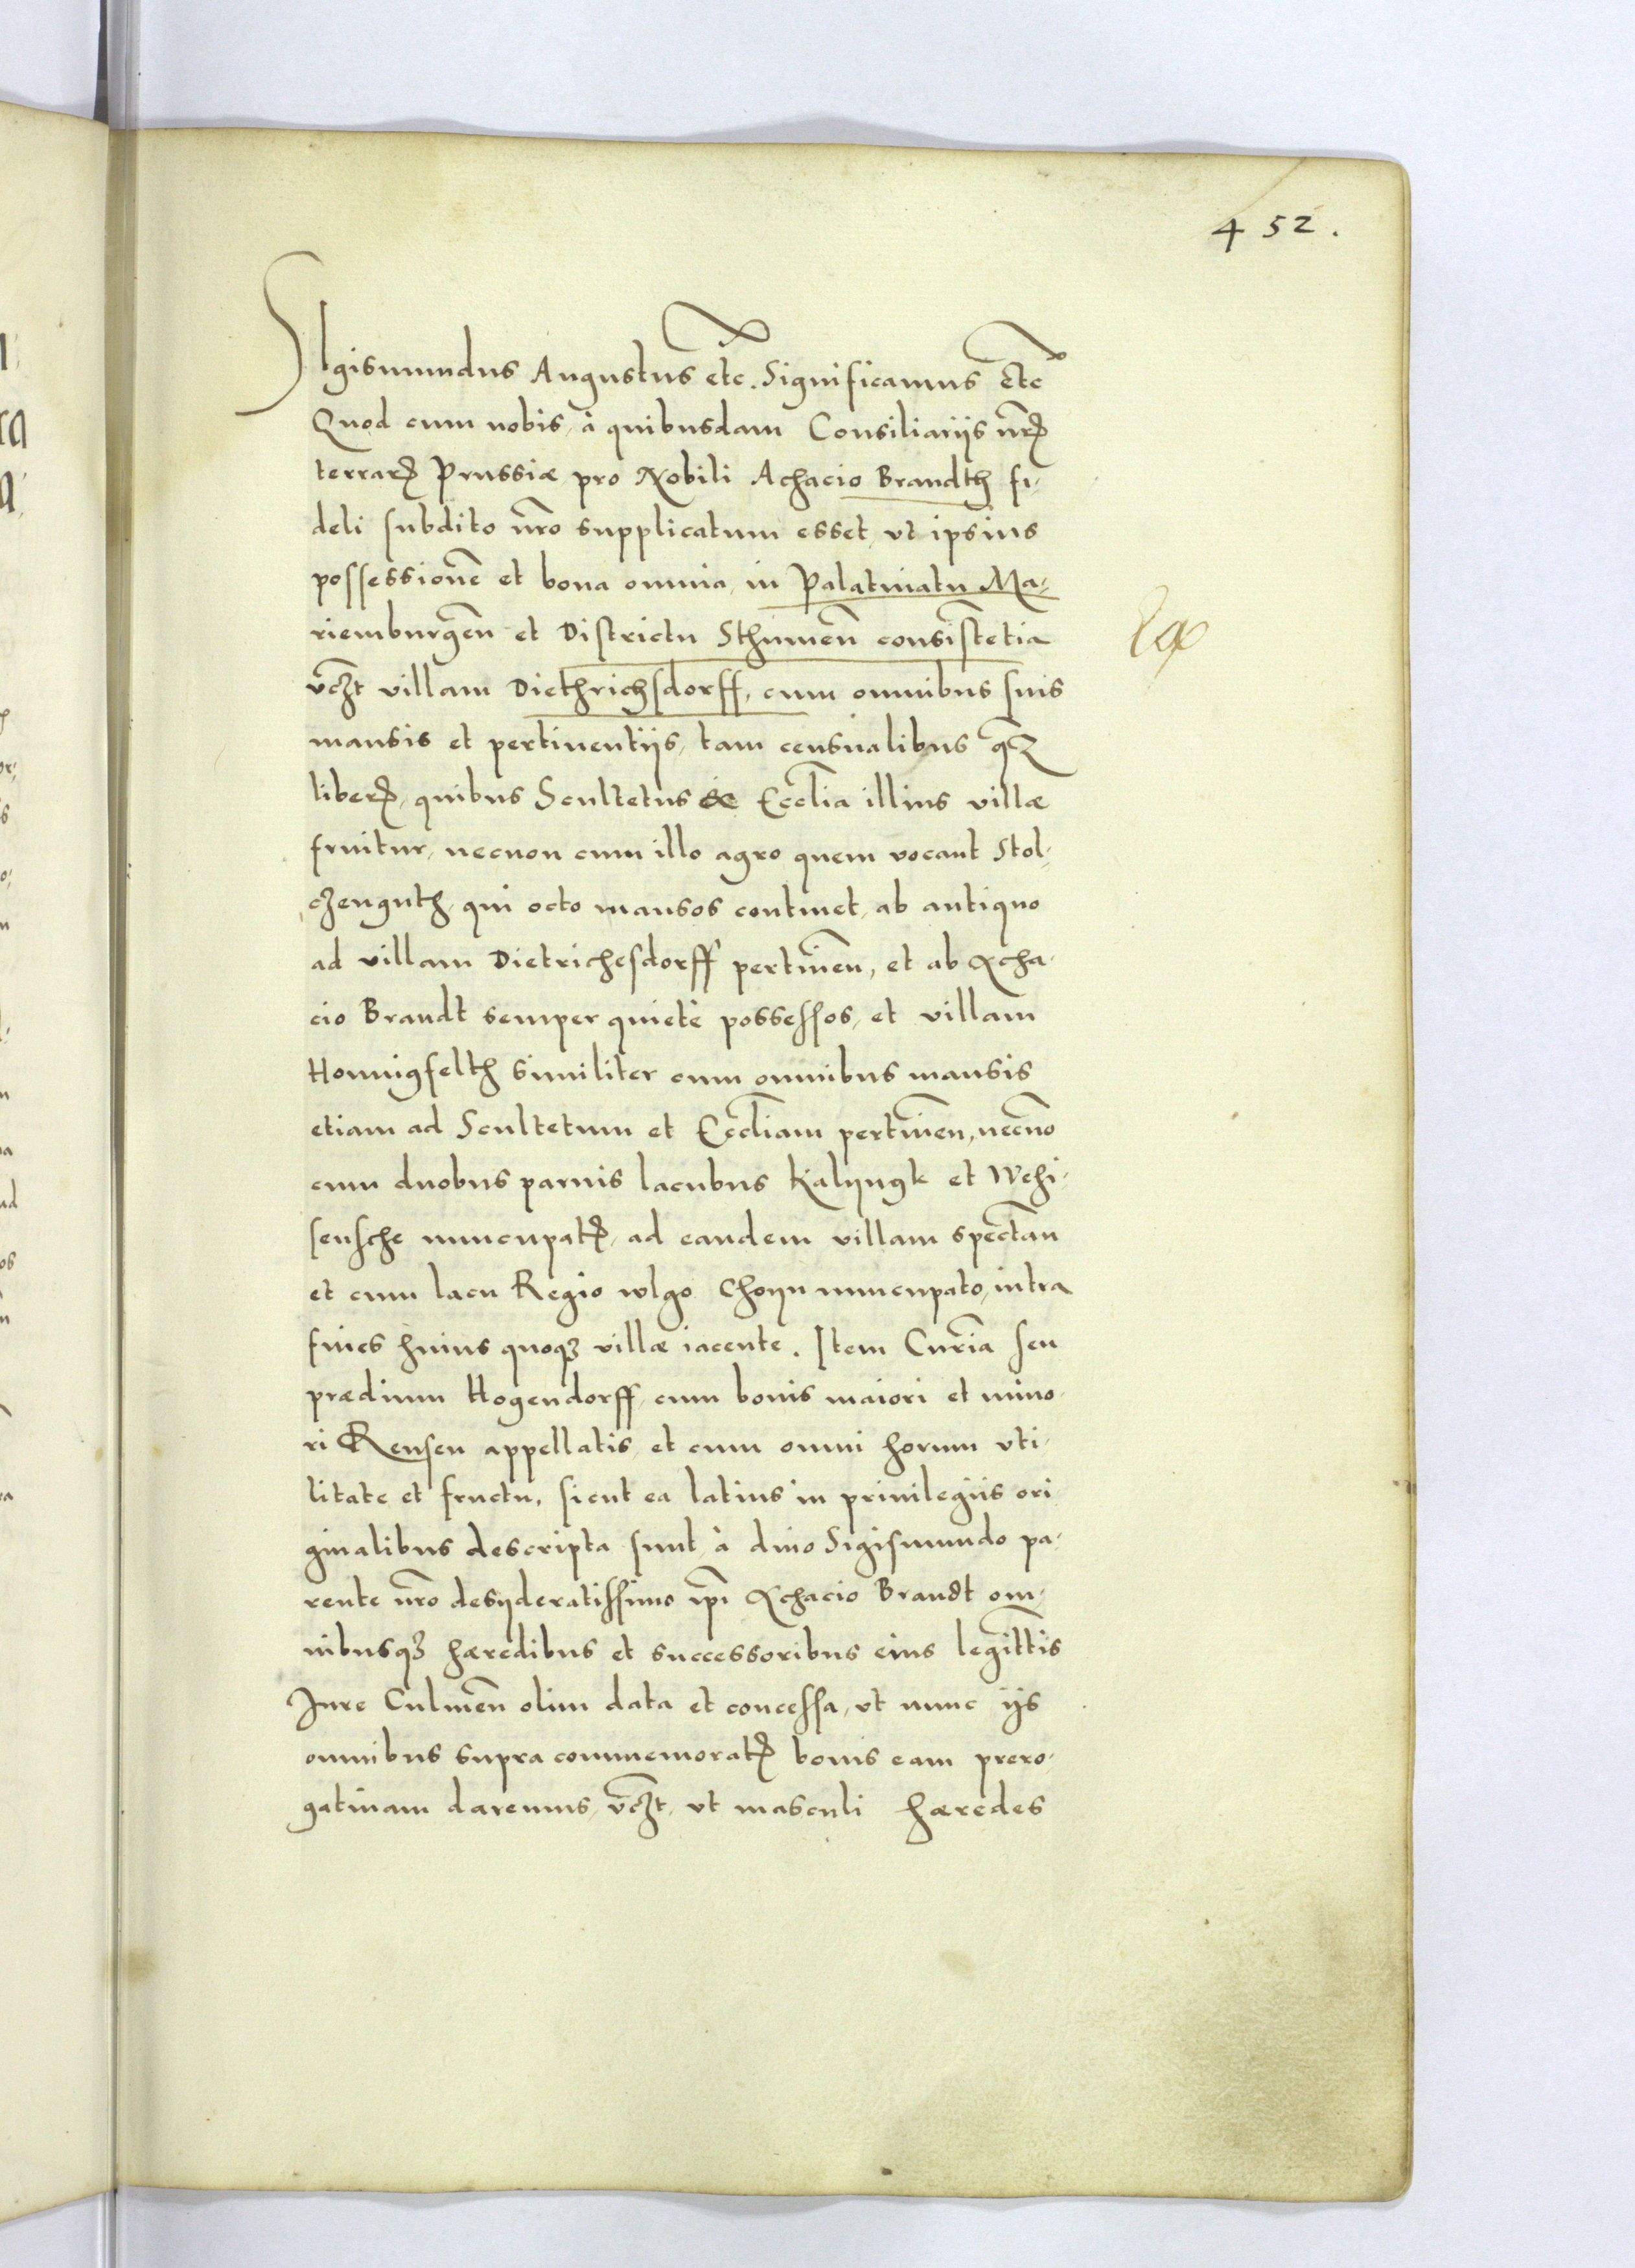 452.
SIgismundus Augustus etc. Significamus Etc̃
Quod cum nobis, à quibusdam Consiliarijs nr̃oꝝ
terraꝝ Prussiæ pro Nobili Achacio Brandth fi⸗
deli subdito nr̃o supplicatum esset, vt ipsius
possessionẽ et bona omnia, in Palatinatu Ma⸗
riemburgeñ et Districtu Sthumeñ consistẽtia
vcz̃t villam Diethrichsdorff, cum omnibus suis
mansis et pertinentijs, tam censualibus qz̃
liberꝝ, quibus Scultetus & Eccl̃ia illius villæ
fruitur, necnon cum illo agro quem vocant Stol⸗
czenguth, qui octo mansos continet, ab antiquo
ad villam Dietrichesdorff pertineñ, et ab Acha⸗
cio Brandt semper quietè possessos, et villam
Honnigfelth similiter cum omnibus mansis
etiam ad Scultetum et Eccl̃iam pertineñ, necnõ
cum duobus paruis lacubus Kalijngk et Wehi⸗
sensche nuncupatꝝ, ad eandem villam spectañ
et cum lacu Regio vlgo Choijn nuncupato, intra
fines huius quoqꝫ villæ iacente. Item Curiã seu
prædium Hogendorff, cum bonis maiori et mino⸗
ri Rensen appellatis, et cum omni horum vti⸗
litate et fructu, sicut ea latius in priuilegijs ori
ginalibus descripta sunt, à diuo Sigismundo pa⸗
rente nr̃o desyderatissimo ip̃i Achacio Brandt om⸗
nibusqꝫ hæredibus et successoribus eius legitt̃is
Iure Culmeñ olim data et concessa, vt nunc ijs
omnibus supra commemoratꝝ bonis eam prero⸗
gatiuam daremus, vcz̃t, vt masculi hæredes